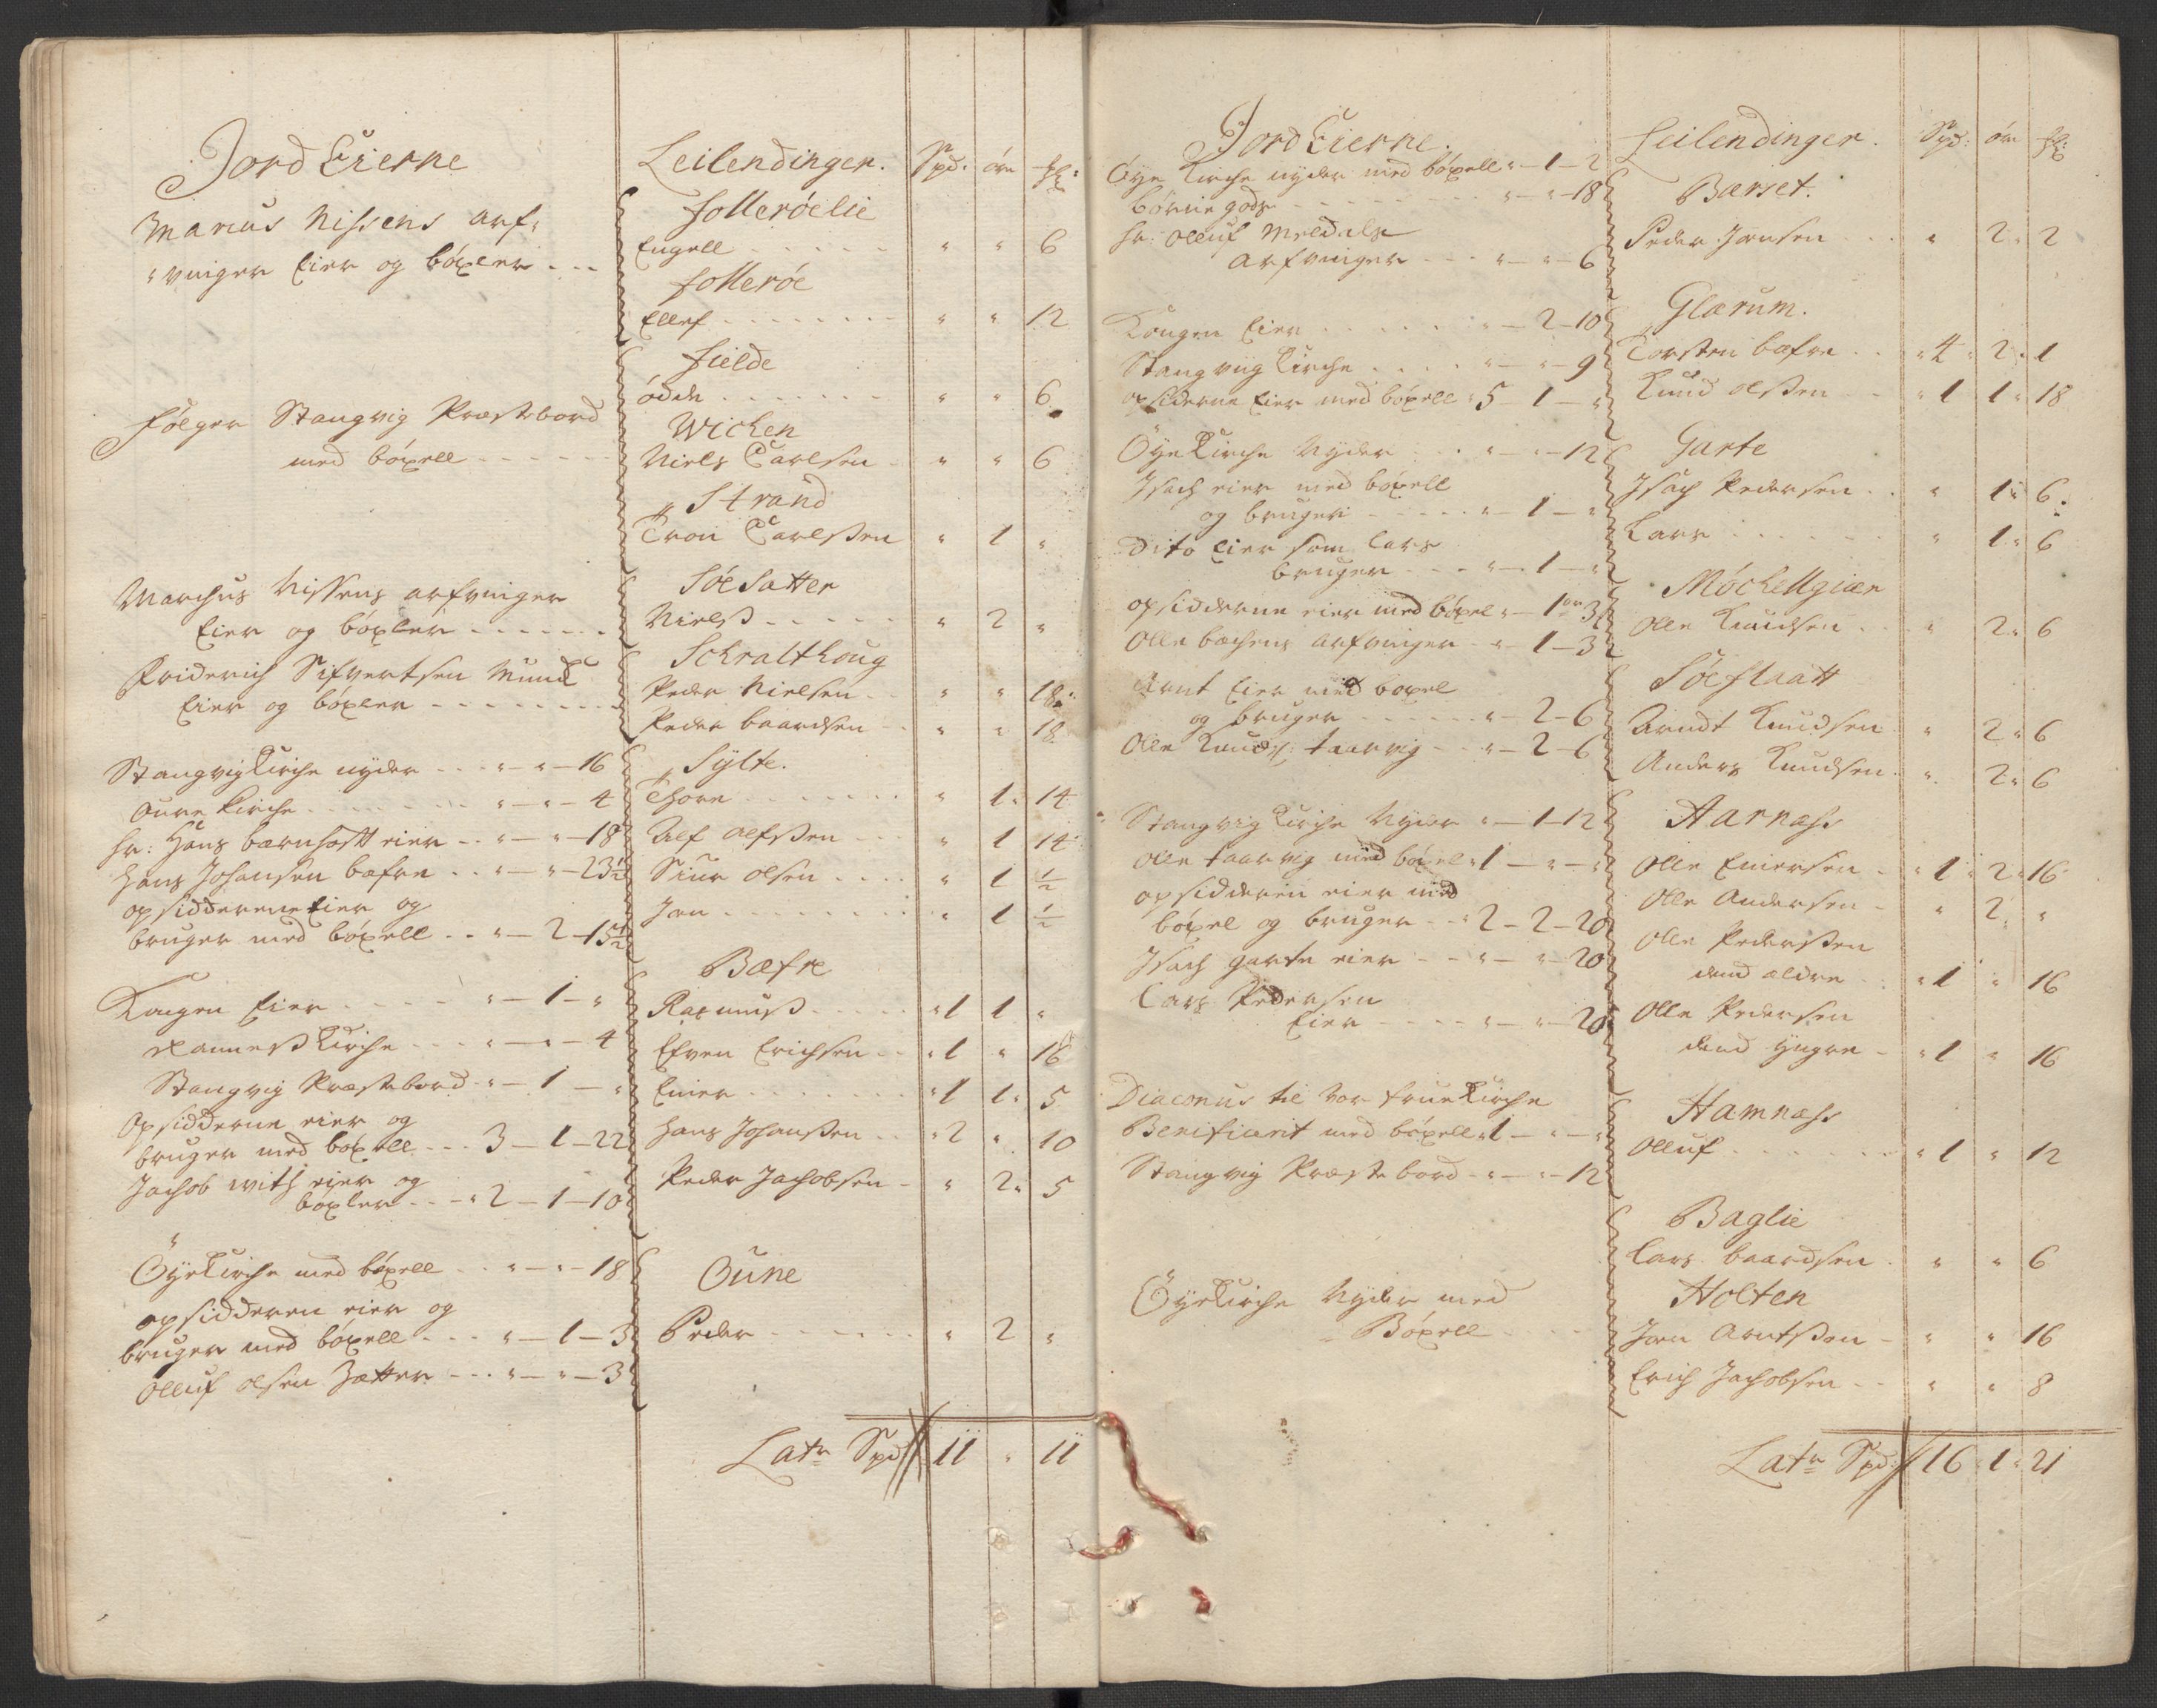 Jord Eierne
Marcus Nissens arf-
vinger Eier og böxler - - -
Følger Stangvig Præstebord
med böxell - - - - -
Marchus Nissens arfvinger
Eier og böxler - - - - - -
Friderich Sifvertsen Mund
Eier og böxler - - - - - - - -
Stangvig Kirche nyder - - - " - " - 16
Oure Kirche - - - - - - " - " - 4
hr: Hans bærnhoft eier - - " - " - 18
Hans Johansen bæfre - - " - " - 23½
opsidderene Eier og
bruger med böxell - - " - 2 - 15½
Kongen Eier - - - - - " - 1 - "
Rannes Kirche - - - " - " - 4
Stangvig Præstebord - " - 1 - "
Opsidderne eier og
bruger med böxell - - - 3 - 1 - 22
Jachob with eier og
böxler - - - " 2 - 1 - 10
Öye Kirche med böxell - - " - " - 18
opsidderen eier og
bruger med böxell - - - " - 1 - 3
Olluf olsen Hætten - - - " - " - 3
Leilendinger. Spd: öre
folleröelie
Engell - - - - - " " 6
folleröe
Ellef - - - - - - - " " 12
fielde
ödde - - - - - - " " 6
Wichen
Niels Carlsen - " " 6
Strand
Tron Carlssen " 1 "
Söesatter
Nielss - - - - - " 2 "
Schralthoug
Peder Nielsen - - " " 18
Peder baardsen - " " 18
Sylte.
Thore - - - - - - " 1 14
Alf alfssen - - " 1 14
Siur olsen - - - - " 1 ½
Jon - - - - - - - " 1 ½
Bæfre
Rasmuss - - - - - " 1 1 "
Efven Erichsen - - " 1 " 16
Einer - - - - - - " 1 1 5
Hans Johanssen - - " 2 " 10
Peder Jachobsen - " 2 5
Oune
Peder - - - - - - " 2 "
Late Spd 11 " 11
Jord Eierne.
Öye Kirche nyder med böxell " - 1 - 2
börne gods - - - - - - - " - " - 18
hr: Olluf Meldals
arfvinger - - - " - " - 6
Kongen Eier - - - - - - " - 2 - 10
Stangviig Kirche - - - - " - " - 9
opsiderne Eier med böxell " 5 - 1 - "
Öye Kirche Nyder - - - " - " - 12
Isach eier med böxell
og bruger - - - - - " - 1 - "
Dito Eier som Lars
bruger - - - " - 1 - "
opsidderne eier med böxel " - 1 - 3
Olle bachens arfvinger - " - 1 - 3
Arnt Eier med boxel
og bruger - - - - - " - 2 - 6
Olle Knuds: taarvig - - " - 2 - 6
Stangvig Kirche Nyder " - 1 - 12
Olle taarvig med böxel " 1 - " - "
opsidderen eier med
böxel og bruger - - " 2 - 2 - 20
Isach garte eier - - " - " - 20
Lars Pedersen
Eier - - - - " - " - 20
Diaconus til vor frue Kirche
Benificerit med böxell " 1 - " - "
Stangvig Præstebord - " - " - 12
Öye Kirche Nyder med
Böxell - - - -
Leilendinger. Spd: öre
Bærset.
Peder Jonsen - - - " 2 2
Glærum.
Torsten bæfre - - " 4 2 1
Knud olssen - - " 1 1 18
Garte
Isach Pedersen - - " 1 6
Lars - - - - - - " 1 6
Möchellgien
Olle Knudsen - - " 2 6
Söeflaatt
Arndt Knudsen " 2 6
Anders Knudsen " 2 6
Aarnæss
Olle Einersen - " 1 2 16
Olle Andersen - " 2 "
Olle Pederssen
dend ældre - - " 1 " 16
Olle Pedersen
dend yngre - " 1 " 16
Hamnæss
Olluf - - - - - - " 1 " 12
Baglie
Lars baardsen - " " 6
Holten
Jon Arntssen - " " 16
Erich Jachobsen - - " " 8
Late Spd: 16 1 21